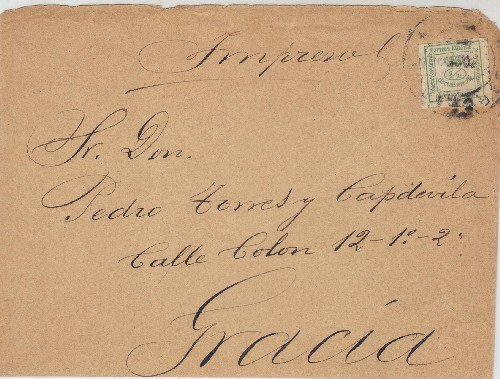 Impreso
Sr. Don.
Pedro Torres y Capdevila
Calle Colon 12-1º-2ª
Gracia